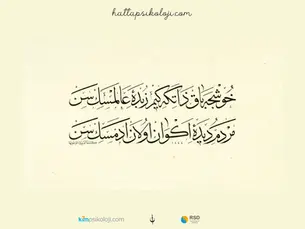 hattapsikoloji.com
خوشجه باق ذاتكه كيم زبدۀ عالمسك سن
مردم ديدۀ اكوان اولان آدمسك سن
kimpsikoloji.com
RSD